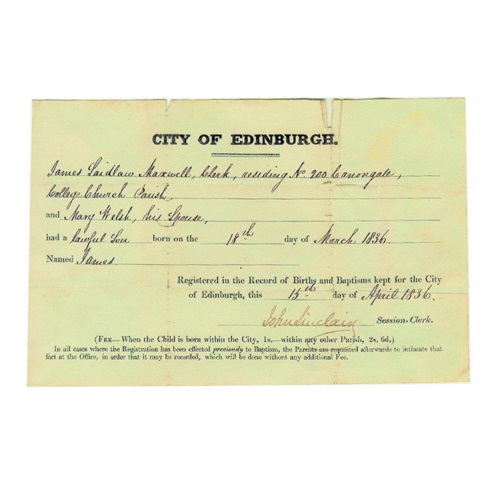 CITY OF EDINBURGH.
James Laidlaw Maxwell, Clerk, residing No. 200 Canongate,
College Church Parish,
and Mary Welsh, his Spouse,
had a lawful Son born on the 18th day of March 1836.
Named James.
Registered in the Record of Births and Baptisms kept for the City
of Edinburgh, this 15th day of April 1836.
John Sinclair Session-Clerk.
(FEE—When the Child is born within the City, 1s.—within any other Parish, 2s. 6d.)
In all cases where the Registration has been effected previously to Baptism, the Parents are requested afterwards to intimate that
fact at the Office, in order that it may be recorded, which will be done without any additional Fee.